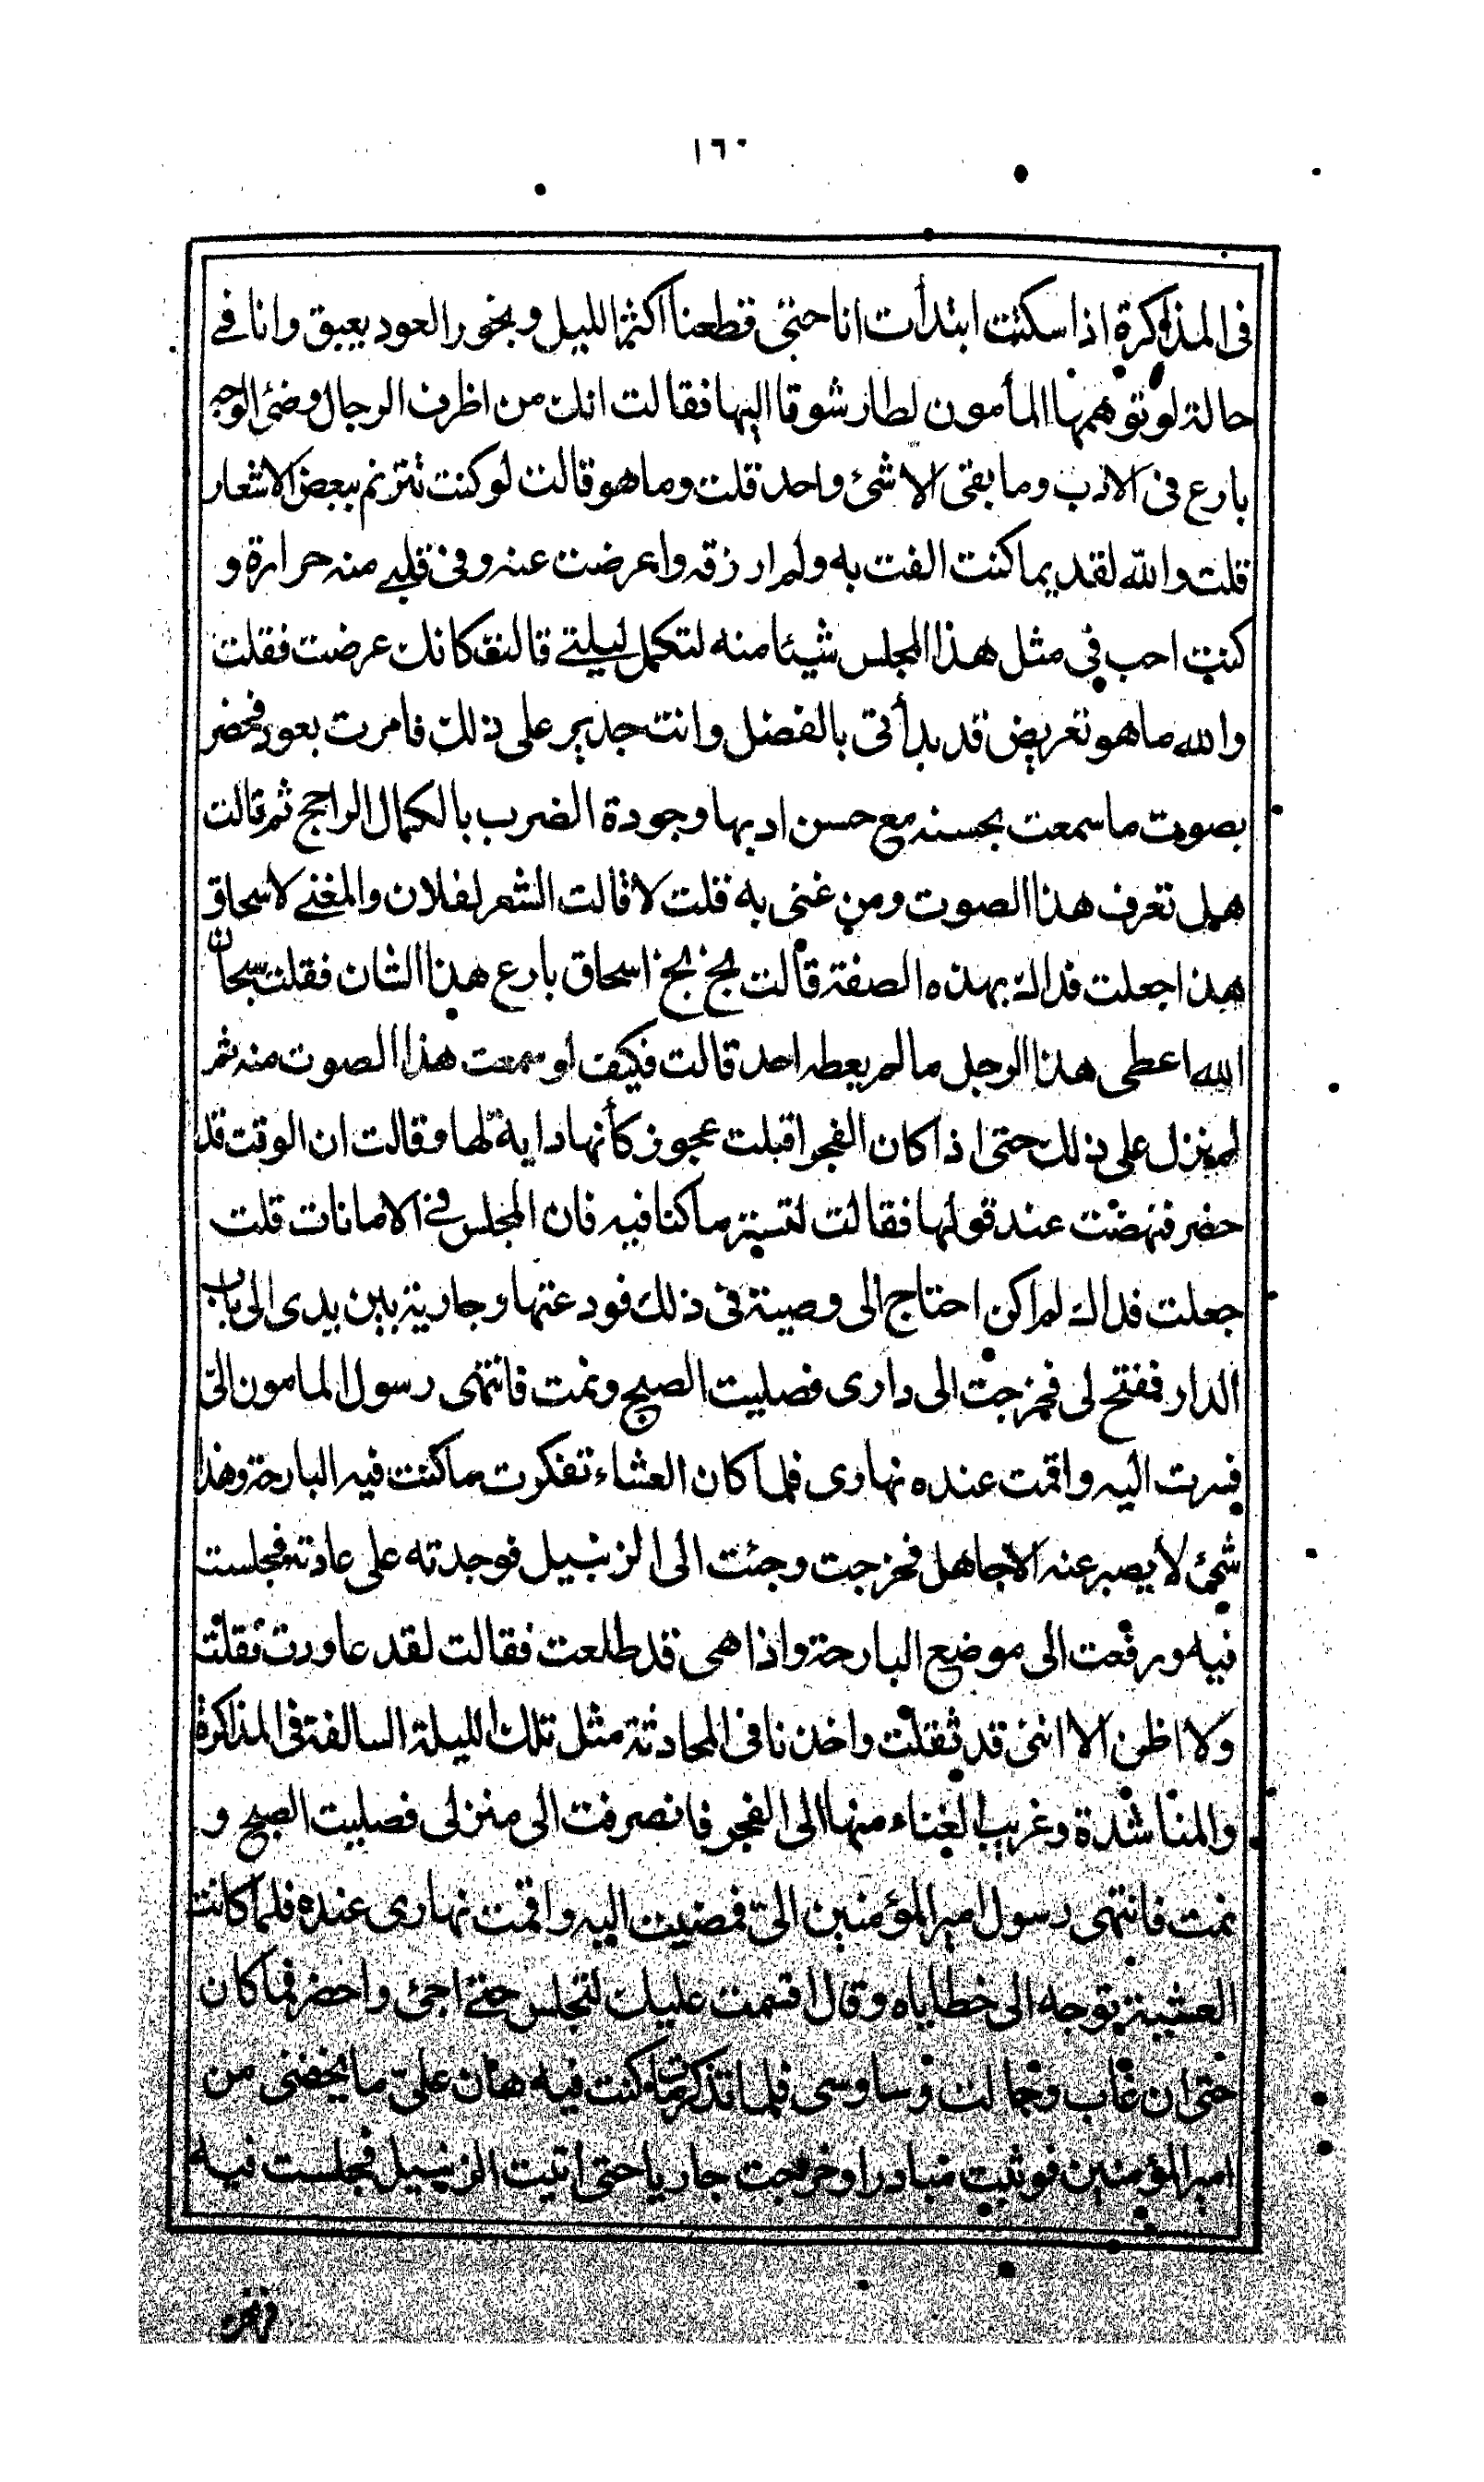 ١٦٠
فى المذاكرة اذا سكتت ابتدأت انا حتى قطعنا اكثر الليل وبخور العود يعبق وانا فے
حالة لو توهمها المأمون لطار شوقا اليها فقالت انك من اظرف الرجال وضئ الوجه
بارع فى الادب وما بقى الا شئ واحد قلت وما هو قالت لو كنت تترنم ببعض الاشعار
قلت والله لقديما كنت الفت به ولم ارزقه واعرضت عنه وفى قلبے منه حرارة و
كنت احب فى مثل هذا المجلس شيئا منه لتكمل ليلتے قالت فكانك عرضت فقلت
والله ما هو تعريض قد بدأتى بالفضل وانت جدير على ذلك فامرت بعود فحضر
بصوت ما سمعت بحسنه مع حسن ادبها وجودة الضرب بالكمال الراجح ثم قالت
هل تعرف هذا الصوت ومن غنى به قلت لا قالت الشعر لفلان والمغنے لاسحاق
هذا جعلت فداك بهذه الصفة قالت بخ بخ اسحاق بارع هذا الشان فقلت سبحان
الله اعطى هذا الرجل ما لم يعطه احد قالت فكيف لو سمعت هذا الصوت منه ثم
لم ينزل على ذلك حتى اذا كان الفجر اقبلت عجوز كأنها داية لها وقالت ان الوقت قد
حضر فنهضت عند قولها فقالت لتستر ما كنا فيه فان المجلس فے الامانات قلت
جعلت فداك لم اكن احتاج الى وصية فى ذلك فودعتها وجارية بين يدى الى باب
الدار ففتح لى فخرجت الى دارى فصليت الصبح ونمت فانتهى رسول المامون الىّ
فسرت اليه واقمت عنده نهارى فلما كان العشاء تفكرت ما كنت فيه البارحة وهذا
شئ لا يصبر عنه الا جاهل فخرجت وجئت الى الزنبيل فوجدته على عادته فجلست
فيه ورفعت الى موضع البارحة واذا هى قد طلعت فقالت لقد عاودت فقلت
ولا اظن الا اننى قد ثقلت واخذنا فى المحادثة مثل تلك الليلة السالفة فى المذاكرة
والمناشدة وغريب الغناء منها الى الفجر فانصرفت الى منزلى فصليت الصبح و
نمت فانتهى رسول امير المؤمنين الىّ فمضيت اليه واقمت نهارى عنده فلما كانت
العشية توجه الى خطاياه وقال اقسمت عليك لتجلس حتے اجئ واحضر فما كان
حتى ان غاب وجالت وساوسى فلما تذكرت ما كنت فيه هان علىّ ما يخضنى من
امير المؤمنين فوثبت مبادرا وخرجت جاريا حتى اتيت الزنبيل فجلست فيه